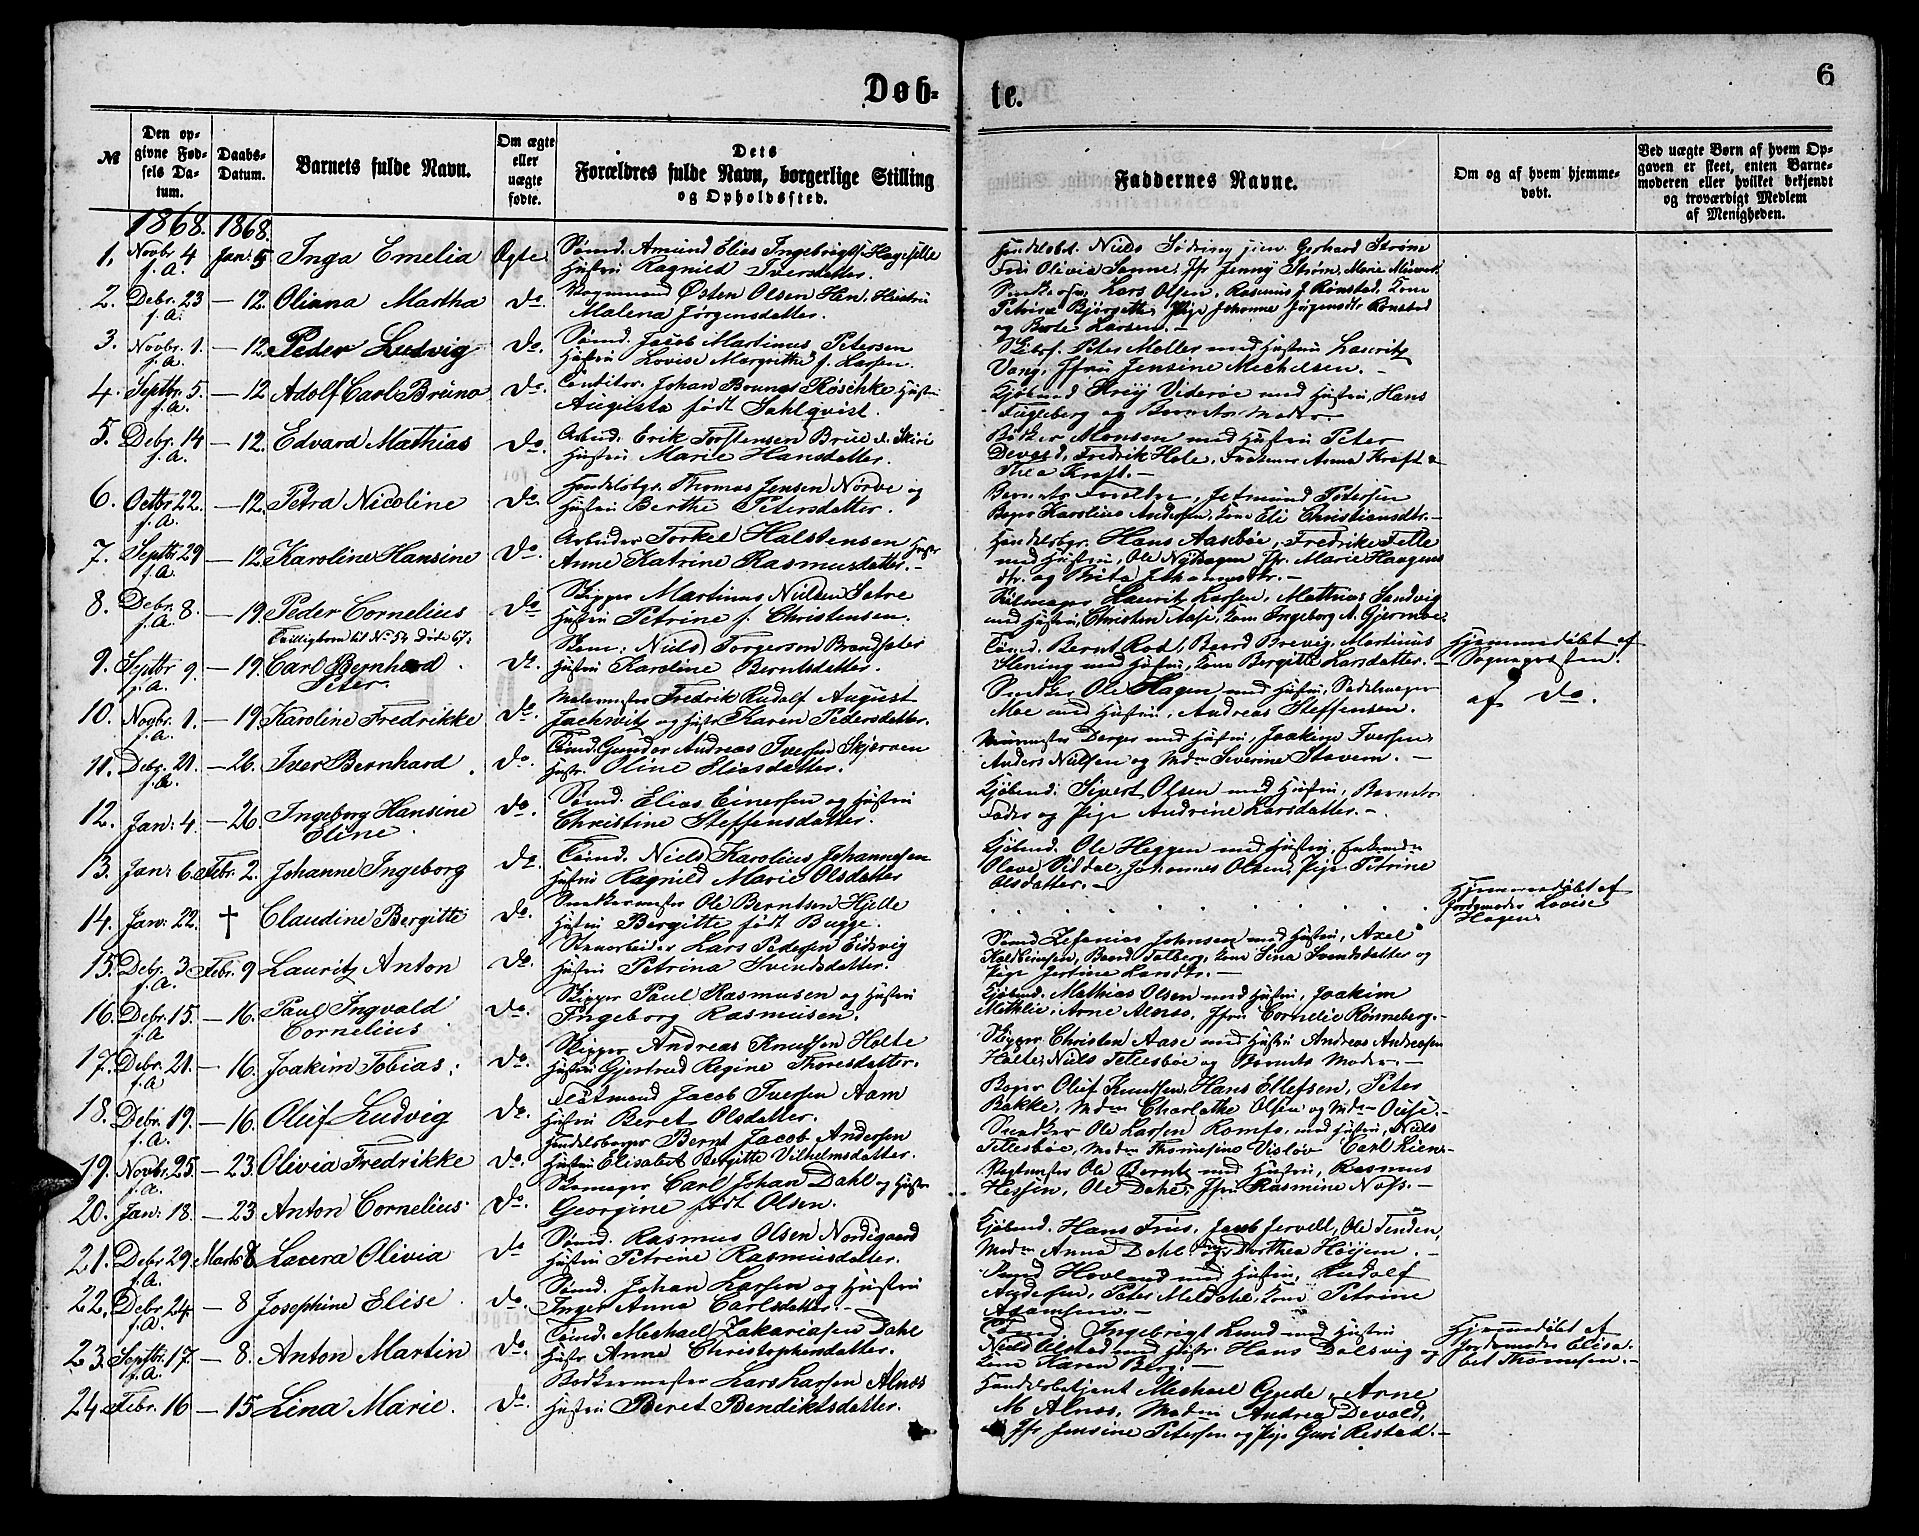 Døb-
te.
6
№
Den op-
givne Fød-
sels Da-
tum.
Daabs-
Datum.
Barnets fulde Navn.
Om ægte
eller
uægte
fødte.
Dets
Forældres fulde Navn, borgerlige Stilling
og Opholdssted.
Faddernes Navne.
Om og af hvem hjemme-
døbt.
Ved uægte Børn af hvem Op-
gaven er skeet, enten Barne-
moderen eller hvilket bekjendt
og troværdigt Medlem
af Menigheden.
1868. 1868.
1. Novbr 4 Jan: 5 Inga Emelia Ægte
f. A.
Sømd. Amund Elias Ingebrigts. Hagesille
Hustru Ragnild Iversdatter.
Handelsbet. Niels Sødring, jien. Gerhard Strøm
2. Debr. 23 — 12. Oliana Martha do
f. A.
Vognmand Østen Olsen Hen, Hustru
Malena Jørgensdatter.
Lars Olsen, Rasmus J. Rønstad, Kone
og Berte Larsen. —
3. Novbr. 1. — 12. Peder Ludvig do.
f. A.
Sømd. Jacob Martinus Petersen
Hustru Lovise Margrethe f. Larsen.
Peter Møller med Hustru, Lauritz
Vang, Jfru Jensine Mechelsen. —
4. Septbr. 5. — 12 Adolf Carl Bruno do.
f. A.
Conditor. Johan Brunas Røschke Hustru
Augusta født Sahlqvist.
Kjøbmd Krey Viderøe med Hustru, Hans
Fugleberg og Barnets Moder. —
5. Debr. 14 — 12. Edvard Mathias do
f. A.
Arbmd. Erik Torstensen Brue d. Skiri
Hustru Marie Hansdatter.
Bødker Monsen med Hustru Peter
Devold, Fredrik Hole, Anna Kraft &
Thea Kraft. —
6. Octbr 22. — 12. Petra Nicoline do.
f. A.
Handelsbgr. Thomas Jensen Nørve og
Hustru Berthe Petersdatter.
Barnets Forældre, Jetmund Petersen
Karoline Andersen, Kone Eli Christiansdtr. —
7. Septbr 29 — 12. Karoline Hansine do.
f. A.
Arbeider Torkel Halstensen Hustr
Anne Katrine Rasmusdatter. —
Handelsbgr. Hans Aasbøe, Fredrike Telle
med Hustru, Ole Nyhagen Jfr. Marie Haagens
dtr. og Brita Johannesdtr. —
8. Debr. 8. — 19. Peder Cornelius do
f. A.
Tvillingbarn til No 54 døbt 67.
Skipper Martinus Nielsen Sætre
Hustru Petrine f. Christensen.
Seilmager Lauritz Larsen, Mathias Sandvig
med Hustru, Christen Aase, Kone Ingeborg A. Gjørnøe.
9. Septbr 9 — 19. Carl Bernhard
f. A. Peter. do.
Niels Torgersen Brandsæter
Hustru Karoline Berntsdatter.
Bernt Rod, Baard Brevig, Martinus
Stening med Hustru, Kone Bergitte Larsdatter. —
Hjemmedøbt af
Sognepræsten.
10. Novbr. 1. — 19. Karoline Fredrikke do.
f. A.
Malermester Fredrik Rudolf August
Zachvitz og Hustr Karin Pedersdatter.
Snedker Ole Hagen med Hustru, Sadelmager
Moe med Hustru, Andreas Steffensen.
af do.
11. Debr. 21 — 26. Iver Bernhard. do.
f. A.
Gunder Andreas Iversen Skjerven
Hustr. Oline Eliasdatter.
med Hustru, Joakim Iversen
Anders Nielsen og Mdm Severine Stavem. —
12. Jan: 4 — 26. Ingeborg Hansine
Eline. do.
Sømd. Elias Einersen og Hustru
Christine Steffensdatter.
Kjøbmd. Sivert Olsen med Hustru, Barnets
Fader og Pige Andrine Larsdatter. —
13. Jan: 6. Febr. 2. Johanne Ingeborg do.
Niels Karolius Johannesen
Hustru Ragnild Marie Olsdatter
Kjøbmd. Ole Heggen med Hustru, Enkemdm
Olave Sildal, Johannes Olsen, Pige Petrine
Olsdatter. —
14. Jan: 22. † Claudine Bergitte do.
Snedkermester Ole Berntsen Hjelle
Hustru Bergitte født Bugge.
Hjemmedøbt af
Jordemoder Lovise
Hagen.
15. Debr. 3 Febr. 9 Lauritz Anton do.
f. A.
Stenarbeider Lars Pedersen Eidsvig
Hustru Petrina Svendsdatter.
Sømd Zefanias Johnsen med Hustru, Axel
Baard Talberg, Kone Lina Svendsdatter og
Pige Larsdtr. —
16. Debr. 15. — 16. Paul Ingvald
f. A Cornelius. do.
Skipper Paul Rasmusen og Hustru
Ingeborg Rasmusen.
Kjøbmd. Mathias Olsen med Hustru, Joakim
Arne Alnæs, Jfru Cornelie Rønneberg. —
17. Debr. 21. — 16. Joakim Tobias. do.
f. A
Skipper Andreas Knudsen Holte
Hustru Gjertrud Regine Thoresdatter.
Skipper Christen Aase med Hustru Andreas Andreasen
Holte, Niels Tellesbøe og Barnets Moder. —
18. Debr. 19. — 16. Oluf Ludvig do.
f. A.
Jacob Iversen Aam
Hustru Beret Olsdatter.
Bager Oluf Knudsen, Hans Ellefsen, Peter
Bakke, Mdm Charlothe Olsen og Mdm Ouse. —
19. Novbr. 25. — 23. Olivia Fredrikke do.
f. A.
Handelsborger Bernt Jacob Andersen
Hustru Elisabet Bergitte Vilhelmsdatter.
Snedker Ole Larsen Romfo, med Hustru, Niels
Tellesbøe, Mdm Thomasine Visløv Carl Lien.
20. Jan: 18. — 23. Anton Cornelius. do.
Skomager Carl Johan Dahl og Hustr
Georgine født Olsen.
Ole Berntz med Hustru, Rasmus
Hessen, Ole Dahl, Jfru Rasmine Næss. —
21. Debr. 29. Marts 8 Lovera Olivia do
f. A.
Sømd. Rasmus Olsen Nordsgaard
Hustru Petrine Rasmusdatter.
Kjøbmd. Hans Friis, Jacob Jervell, Ole Tenden,
Mdm Anna Dahl, Pige Dorthea Høyem. —
22. Debr. 24. — 8 Josephine Elise. do.
f. A.
Sømd. Johan Larsen og Hustru
Inger Anna Carlsdatter. —
Hovland med Hustru, Rudolf
Andersen, Peter Melchi, Kone Petrine
Adamsen. —
23. Septbr. 17. — 8. Anton Martin do.
f. A.
Mechael Zakariasen Dahl
Hustr. Anne Christophersdatter.
Ingebrigt Lund med Hustru
Niels Alstad med Hustr. Hans Dalsvig og
Kone Karen Berg. —
Hjemmedøbt af
Jordemoder Elisa-
bet Thomesen. —
24 Febr. 16 — 15 Lina Marie. do.
Bødkermester Lars Larsen Alnæs
Hustru Beret Bendiktsdatter.
Handelsbetjent Mechael Gude, Arne
M Alnæs, Mdm Andrea Devold,
Jfr Jensine Petersen og Pige Guri Restad. —